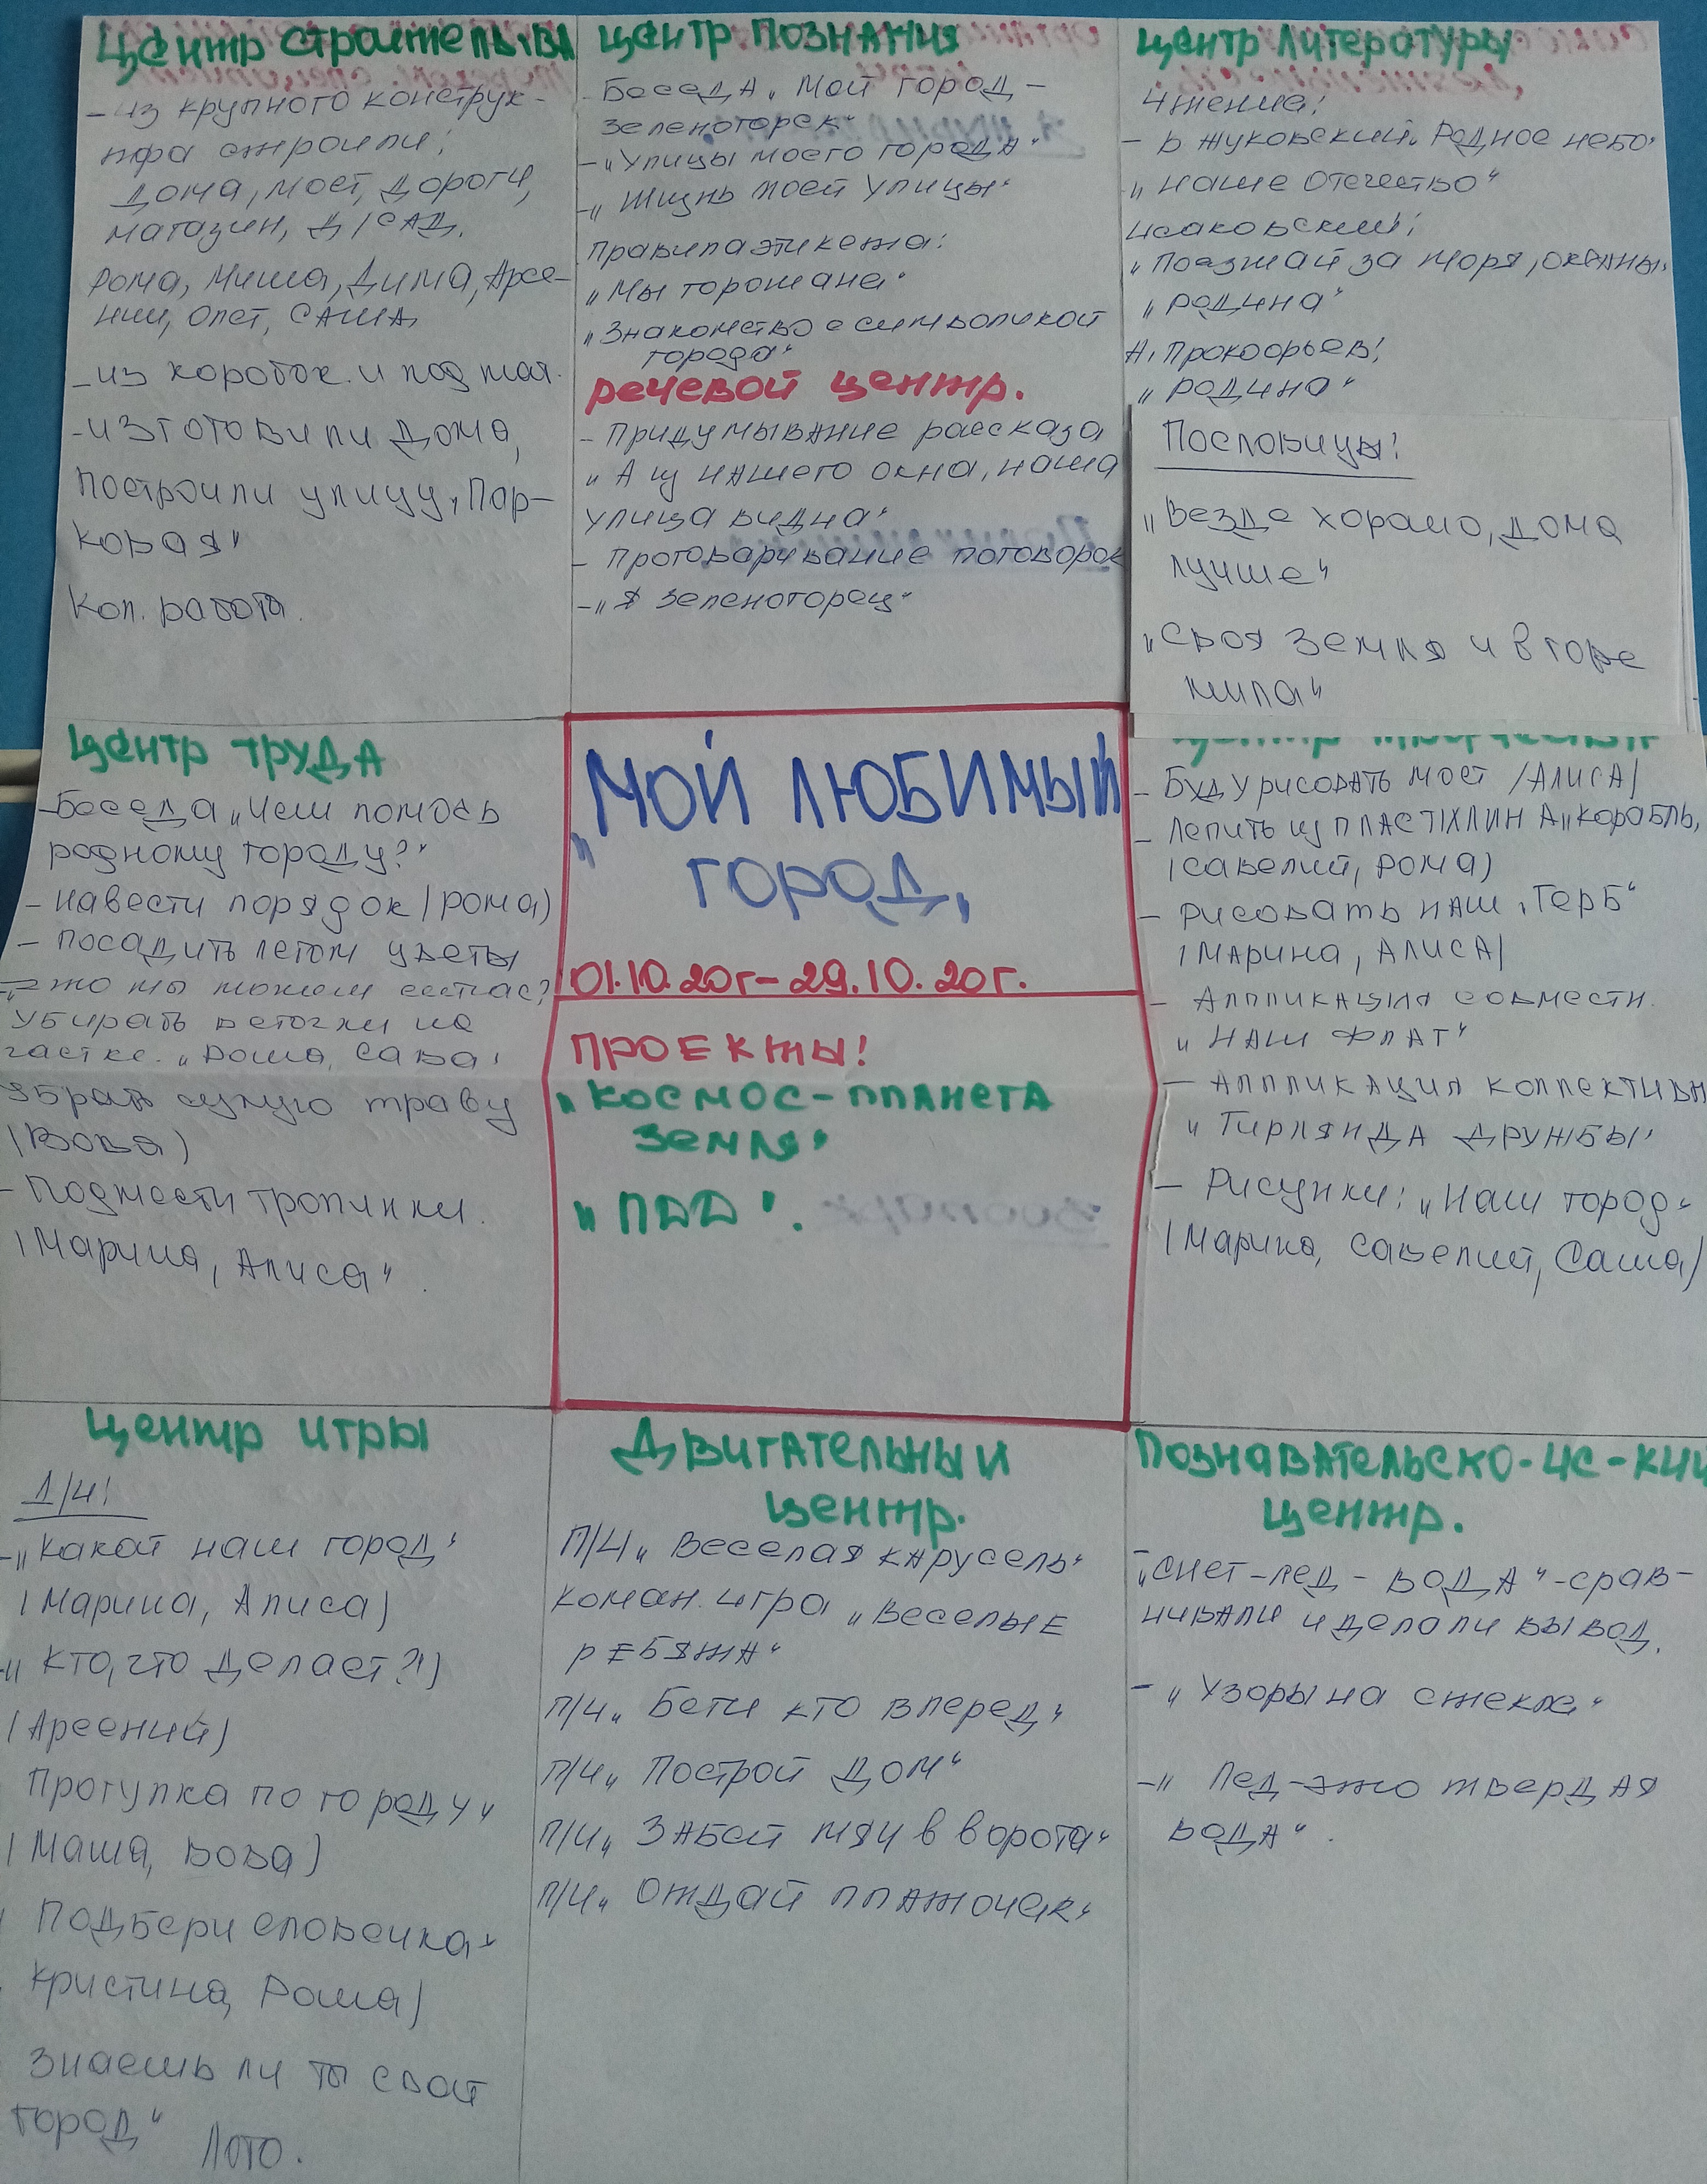 Центр строительства
- из крупного конструк-
тора строили:
дома, мост, дороги,
магазин, д/сад.
Рома, Миша, Дима, Арсе-
ний, Олег, Саша,
- из коробок и под тая.
- изготовили дома,
построили улицу „Пар-
ковая"
Кол. работа.
Центр познания
Беседа „Мой город -
Зеленогорск"
- „Улицы моего города"
- „Жизнь моей улицы"
Правила этикета:
„Мы горожане"
„Знакомство с символикой
города"
Речевой центр.
- Придумывание рассказа
„А из нашего окна, наша
улица видна"
- Проговаривание поговорок
- „Я Зеленогорец"
Центр литературы
Чтение:
- В Жуковский „Родное небо"
„Наше Отечество"
Исаковский:
„Поезжай за моря, океаны"
„Родина"
А. Прокофьев:
„Родина"
Пословицы:
„Везде хорошо, дома
лучше"
„Своя земля и в горе
мила"
Центр труда
- Беседа „Чем помочь
родному городу?"
- навести порядок (Рома)
- посадить летом цветы
- что мы можем сейчас?
Убирать веточки на
участке. „Рома, Сава"
Убрать сухую траву
(Вова)
- Подмести тропинки.
(Марина, Алиса"
„МОЙ ЛЮБИМЫЙ
ГОРОД"
01.10.20г - 29.10.20г.
ПРОЕКТЫ!
„КОСМОС - ПЛАНЕТА
ЗЕМЛЯ"
„ПДД".
Центр творчества
- Буду рисовать мост (Алиса)
- Лепить из пластилина „Корабль,
(Савелий, Рома)
- Рисовать наш „Герб"
(Марина, Алиса)
- Аппликация совмести.
„Наш флаг"
- Аппликация коллективн
„Гирлянда дружбы"
- Рисунки: „Наш город"
(Марина, Савелий, Саша)
Центр игры
Д/И:
- „Какой наш город"
(Марина, Алиса)
- „Кто, что делает?")
(Арсений)
Прогулка по городу"
(Маша, Вова)
Подбери словечка"
Кристина, Рома)
Знаешь ли ты свой
город"
Лото.
Двигательный
центр.
П/И „Веселая карусель"
Коман. игра „Веселые
ребята"
П/И „Беги кто вперед"
П/И „Построй дом"
П/И „Забей мяч в ворота"
П/И „Отдай платочек"
Познавательско-ис-кий
центр.
- „Снег - лед - вода" - срав-
нивали и делали вывод.
- „Узоры на стекле"
- „Лед - это твердая
вода".